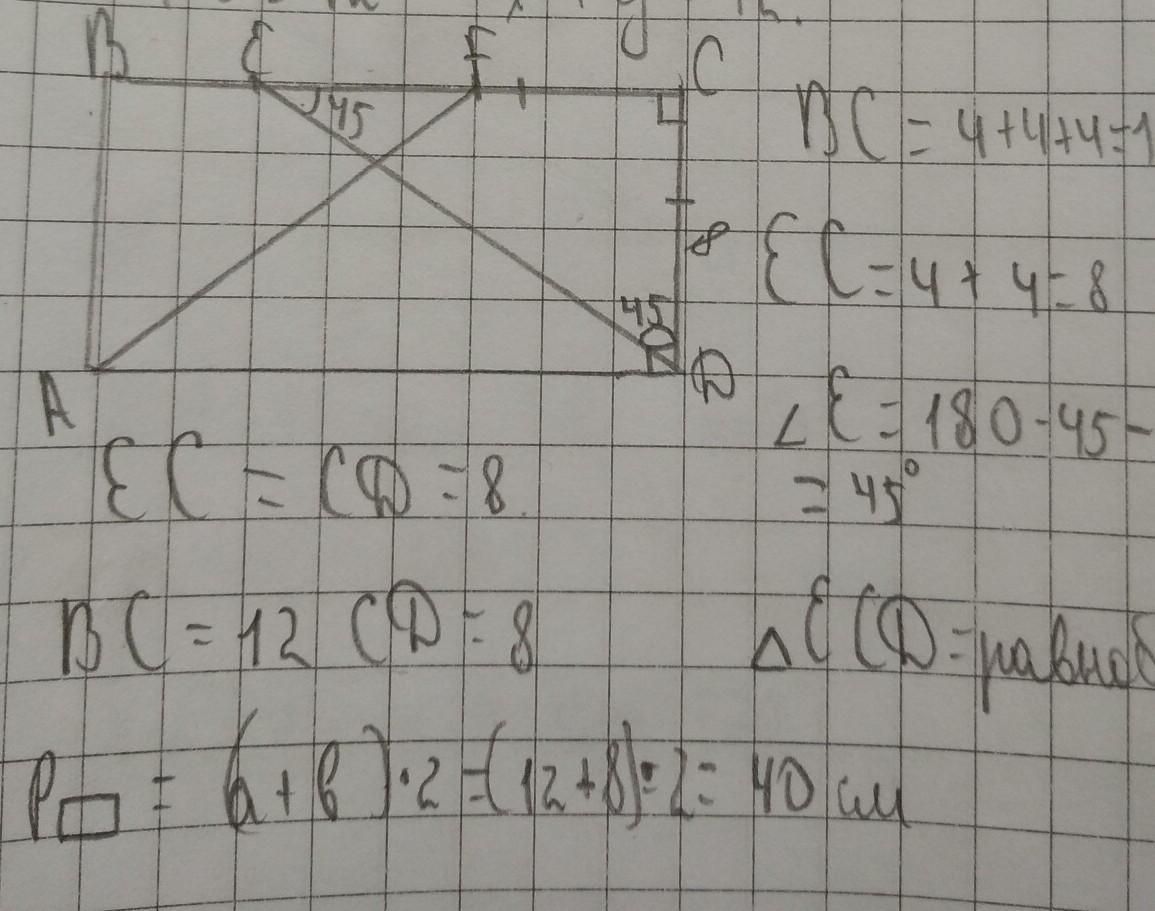 B E F C
45
BC = 4+4+4=1
8
EC = 4 + 4 = 8
45
A D
∠E = 180-45-
= 45°
EC = CD = 8
BC = 12 CD = 8
△ECD = равноб
P▭ = (a + b)·2 = (12+8)·2 = 40 см